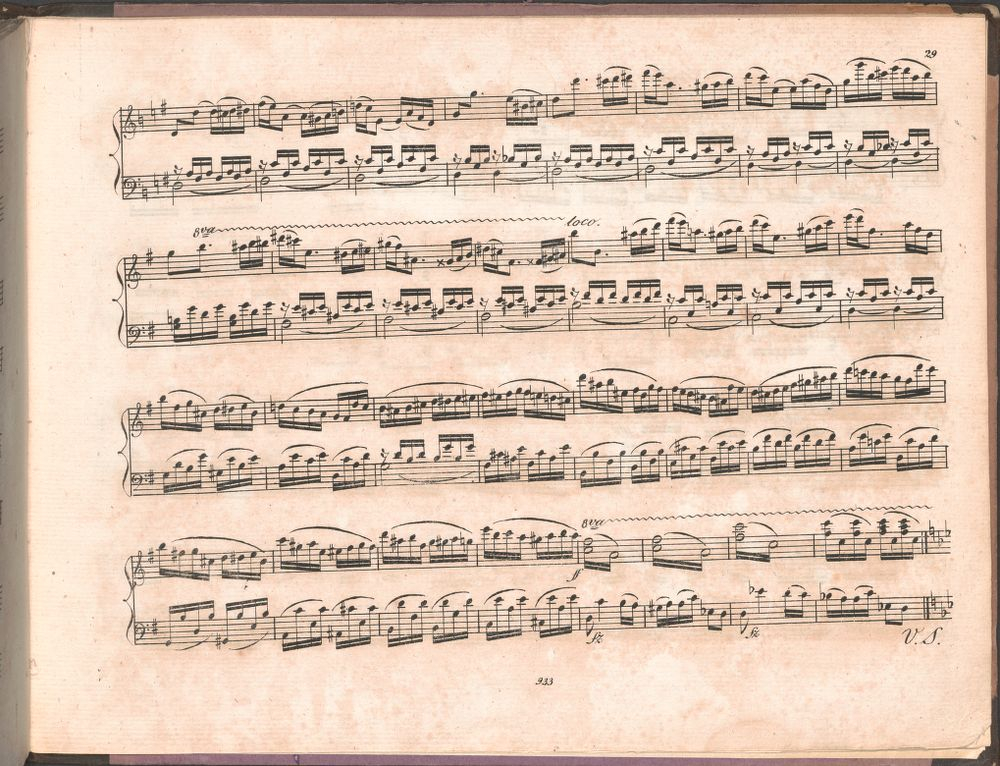 29
8va
loco.
8va
ff
fz
fz
V. S.
933